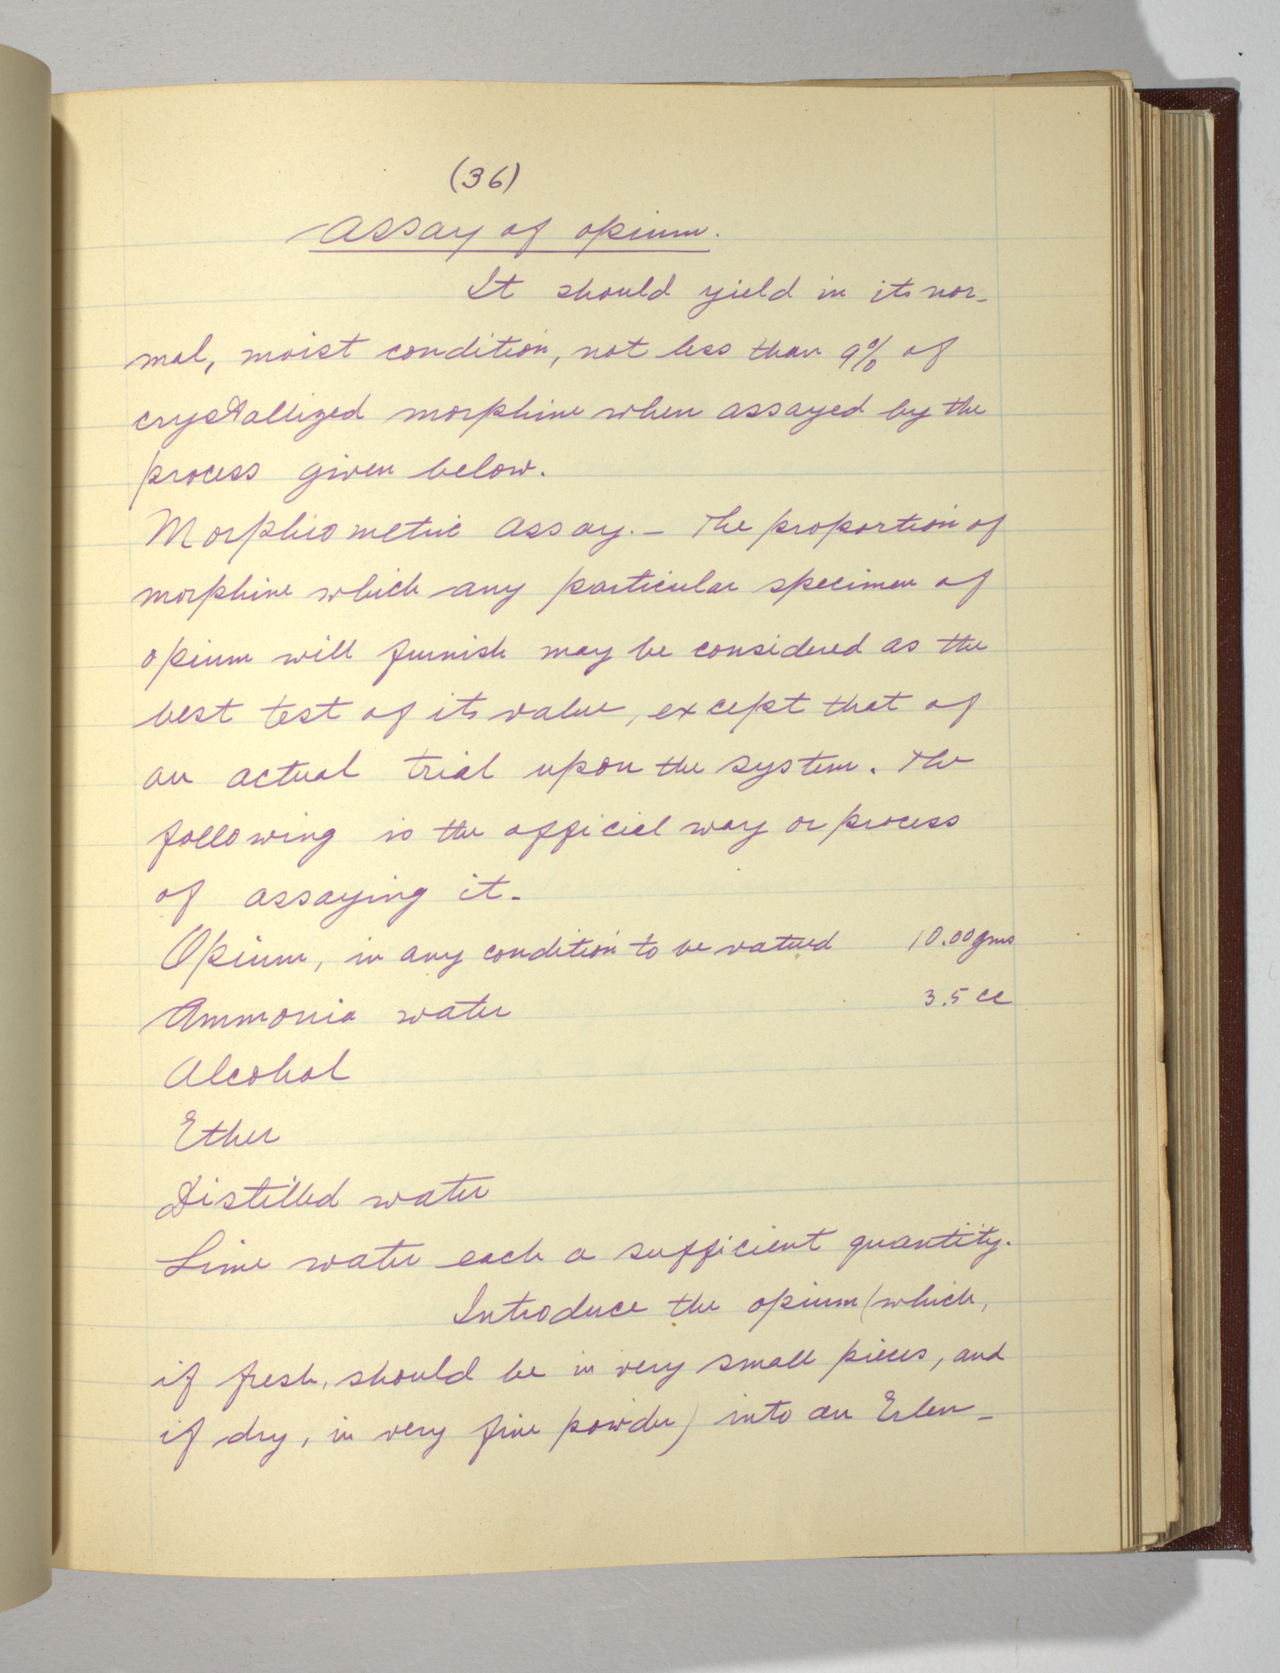 (36)
Assay of opium.
It should yield in its nor-
mal, moist condition, not less than 9% of
crystallized morphine when assayed by the
process given below.
Morphiometric Assay.- The proportion of
morphine which any particular specimen of
opium will furnish may be considered as the
best test of its value, except that of
an actual trial upon the system. The
following is the official way or process
of assaying it-
Opium, in any condition to be valued 10.00gms
Ammonia water 3.5 cc
Alcohol
Ether
Distilled water
Lime water each a sufficient quantity.
Introduce the opium (which,
if fresh, should be in very small pieces, and
if dry, in very fine powder) into an Erlen-